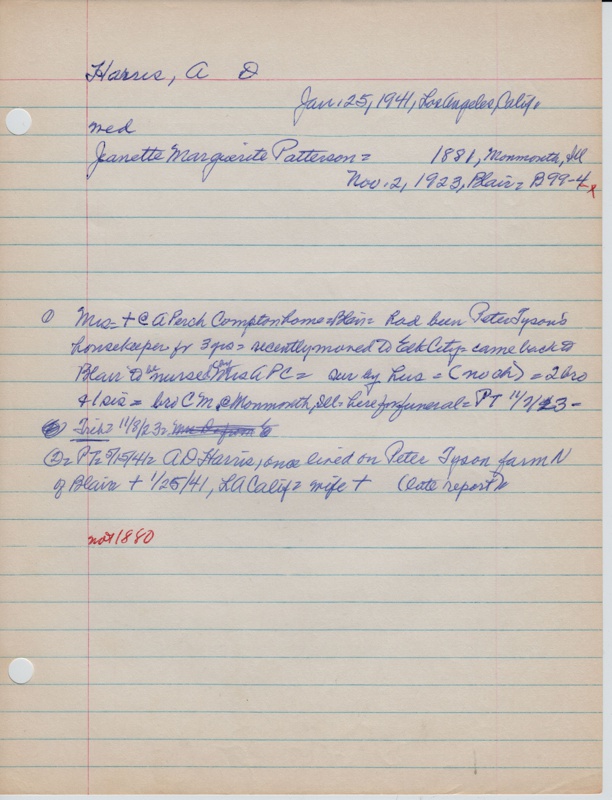 Harris, A D
Jan. 25, 1941, Los Angeles, Calif.
med
Jeanette Marguerite Patterson = 1881, Monmouth, Ill
Nov. 2, 1923, Blair = B99-4 x
① Mrs = + @ A Perch Compton home = Blair = had been Peter Tyson's
housekeeper for 3 yrs = recently moved to Elk City = came back to
Blair to be nursed by Mrs A P C = sur by hus = (no ch) = 2 bro
& 1 sis = bro C M, @ Monmouth, Ill = here for funeral = PT 11/7/23 =
Trib = 11/8/23 =
②= PT = 5/15/41 = A D Harris, once lived on Peter Tyson farm N
of Blair + 1/25/41, LA Calif = wife + (late report) =
not 1880